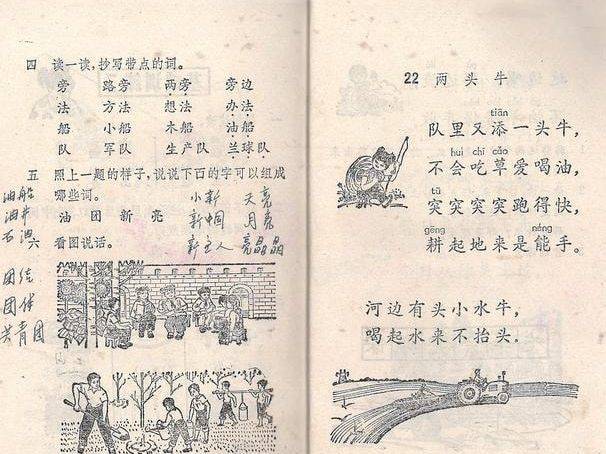 四 读一读,抄写带点的词。
旁 路旁 两旁 旁边
法 方法 想法 办法
船 小船 木船 油船
队 军队 生产队 兰球队
五 照上一题的样子,说说下面的字可以组成
哪些词。
油 团 新 亮
六 看图说话。
油船
油井
石油
团结
团伴
共青团
小新 天亮
新帼 月亮
新主人 亮晶晶
22 两头牛
tiān
队里又添一头牛,
huì chī cǎo
不会吃草爱喝油,
tū
突突突突跑得快,
gēng néng
耕起地来是能手。
河边有头小水牛,
喝起水来不抬头。